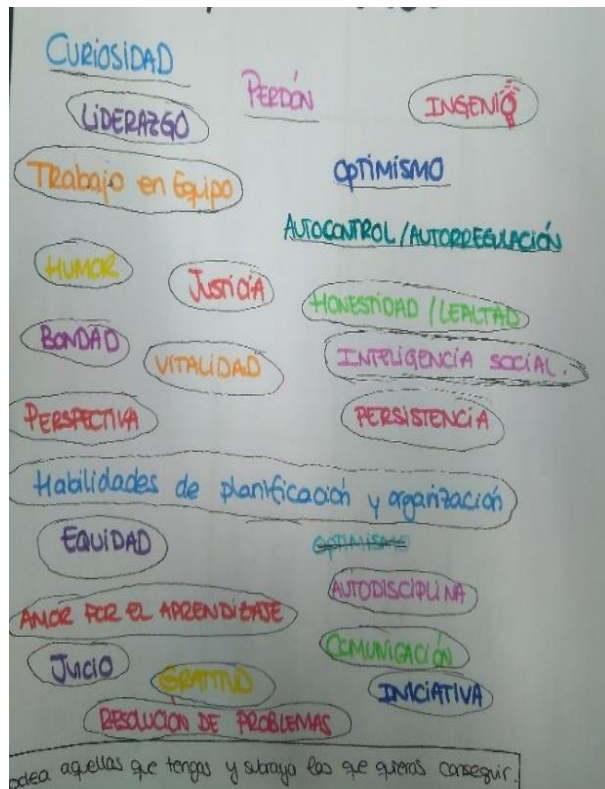 CURIOSIDAD
PERDÓN
INGENIO
LIDERAZGO
Trabajo en Equipo
OPTIMISMO
AUTOCONTROL/AUTORREGULACIÓN
HUMOR
JUSTICIA
HONESTIDAD/LEALTAD
BONDAD
VITALIDAD
INTELIGENCIA SOCIAL.
PERSPECTIVA
PERSISTENCIA
Habilidades de planificación y organización
EQUIDAD
OPTIMISMO
AUTODISCIPLINA
AMOR POR EL APRENDIZAJE
COMUNICACIÓN
JUICIO
GRATITUD
INICIATIVA
RESOLUCIÓN DE PROBLEMAS
aquellas que tengas y subraya las que quieras conseguir.